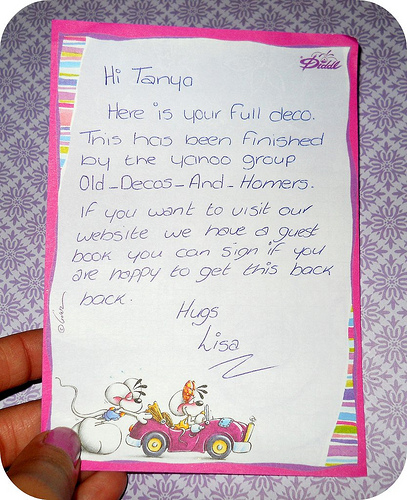 Diddl
Hi Tanya
Here is your full deco.
This has been finished
by the yahoo group
Old_Decos_And_Homers.
If you want to visit our
website we have a guest
book you can sign if you
are happy to get this back
back.
Hugs
Lisa